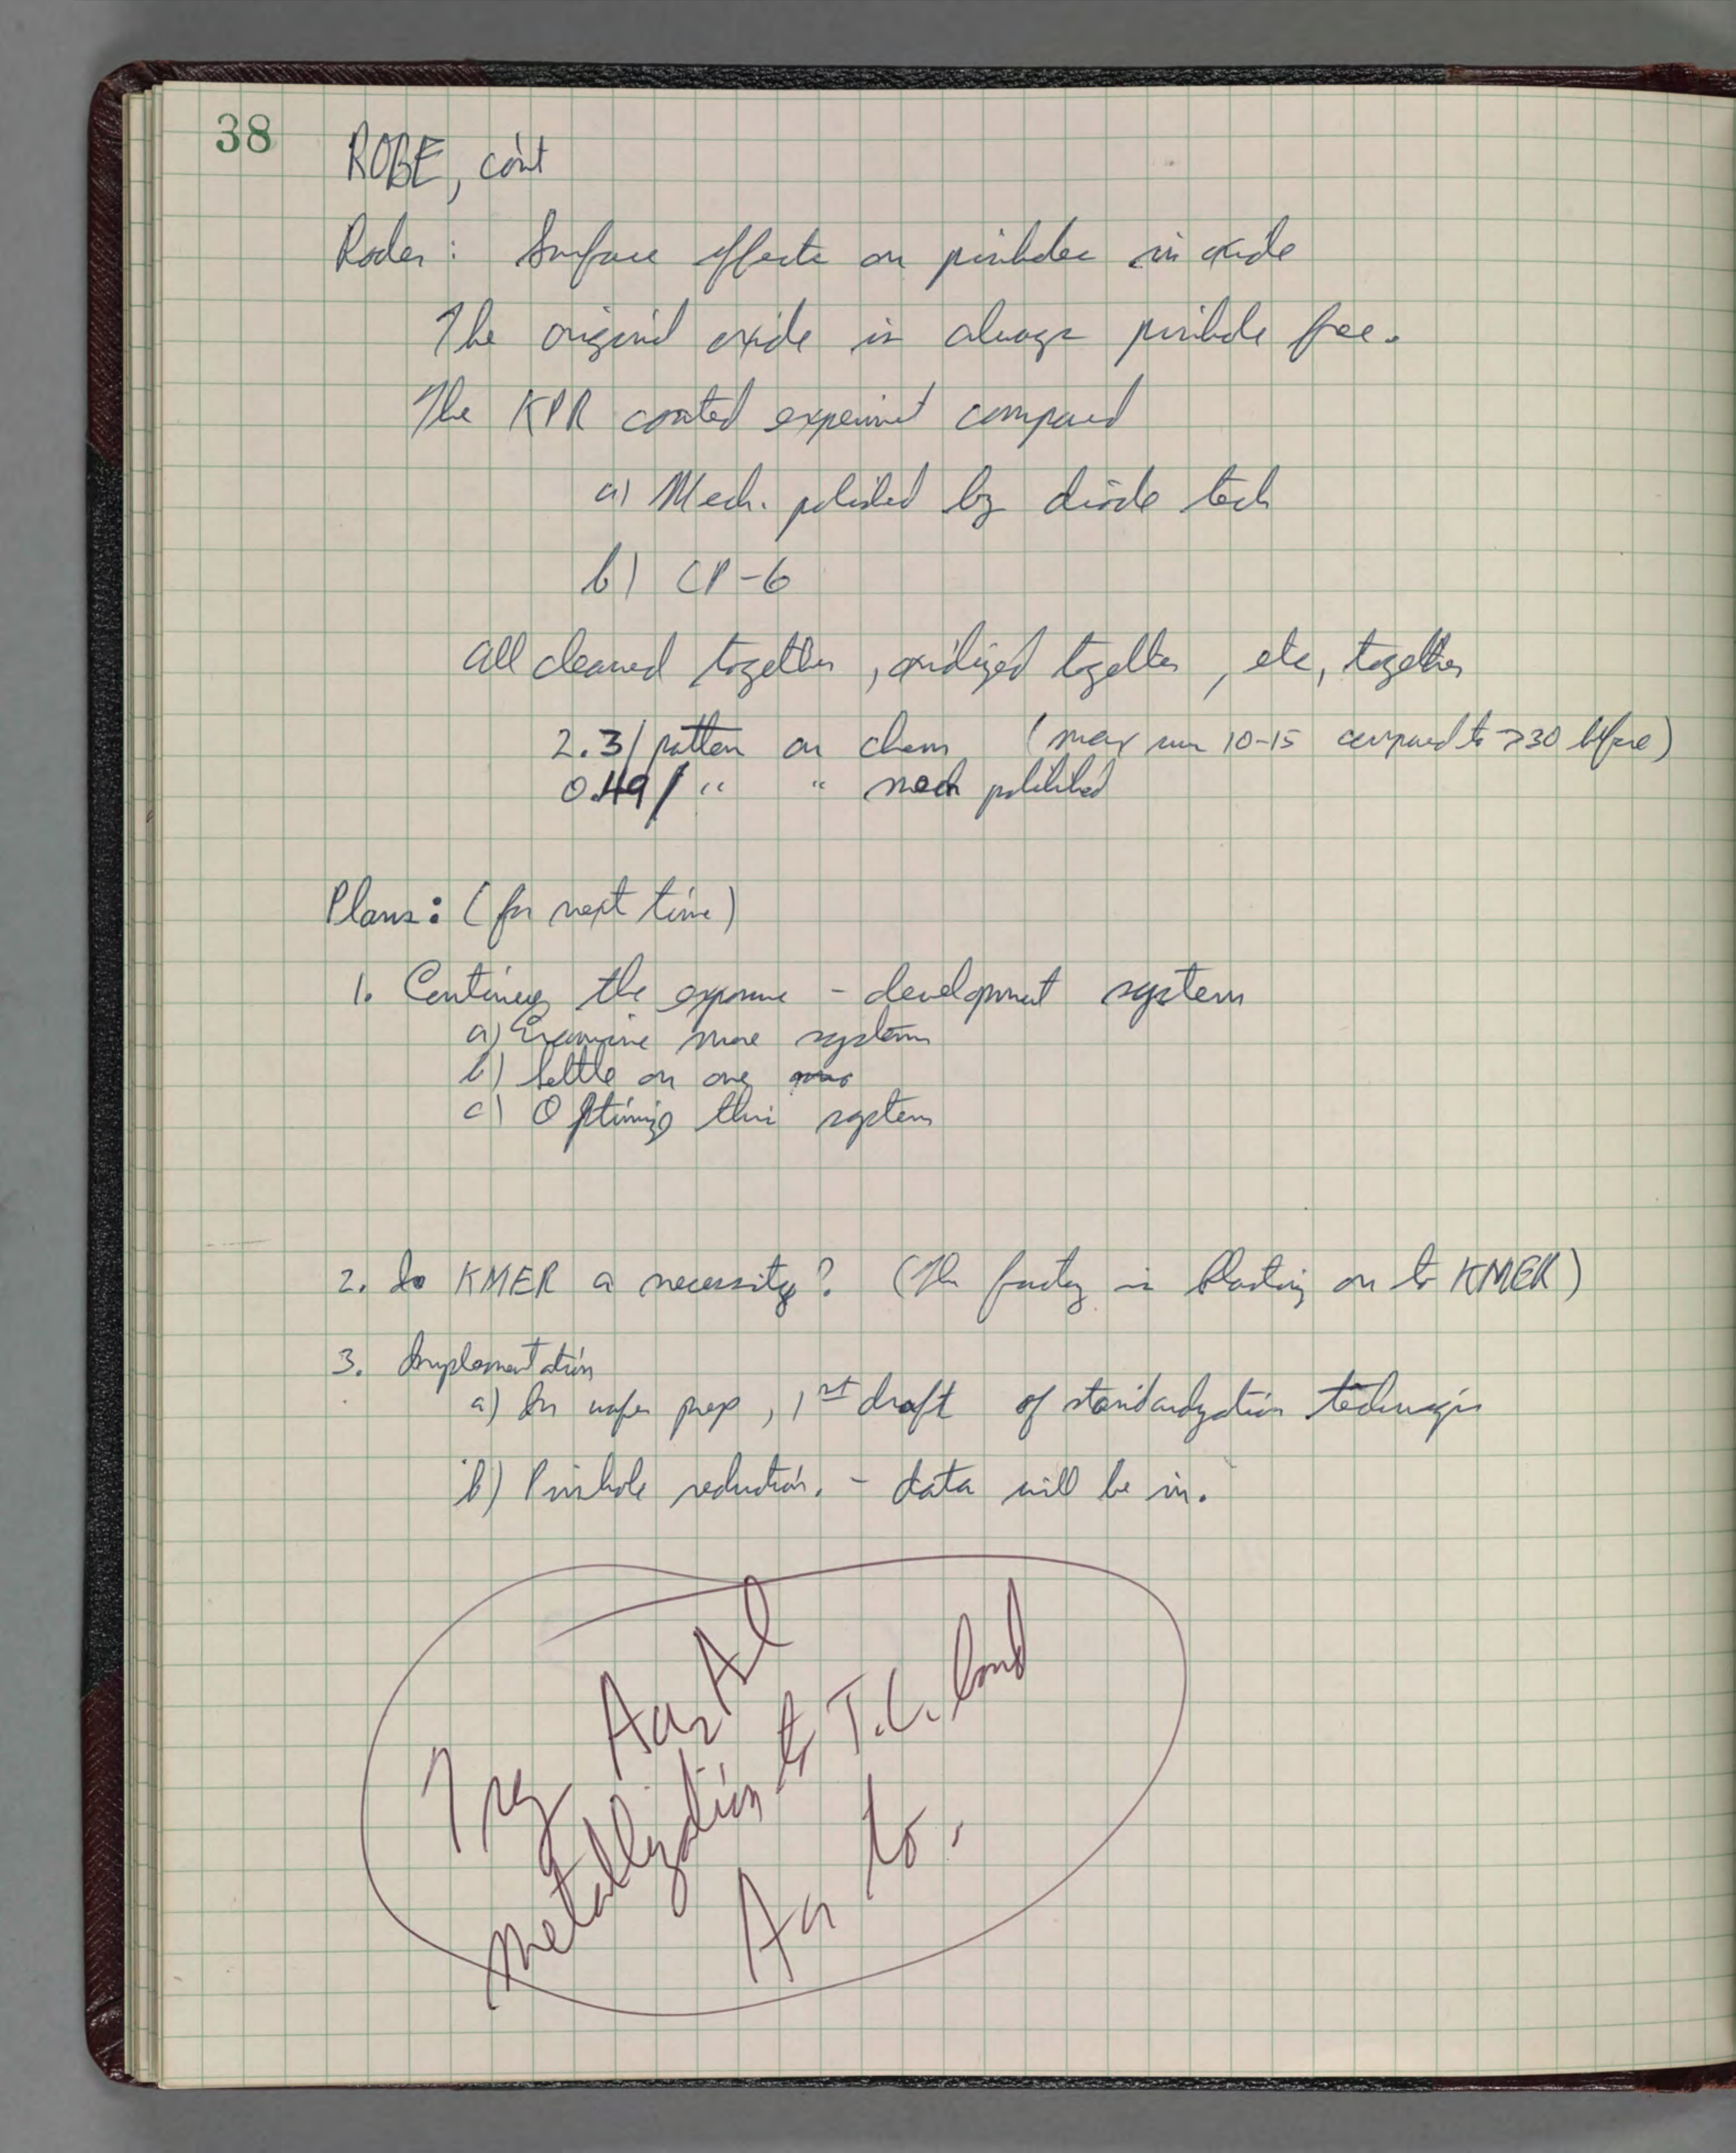 38
ROBE, con't
Surface effects on pinholes in oxide
The original oxide is always pinhole free.
The KPR coated experiment compared
a) Mech. polished by diode tech
b) CP-6
All cleaned together, oxidized together, etc, together
2.3/pattern on chem (max run 10-15 compared to >30 before)
0.49/ " " mech polished
Plans: (for next time)
1. Continue the exposure - development system
a) Examine more systems
b) Settle on one
c) Optimize this system
2. Is KMER a necessity? (The factory is blasting on to KMER)
3. Implementation
a) In wafer prep, 1st draft of standardization techniques
b) Pinhole reduction. - data will be in.
Try Au2Al
metallization to T.C. bond
Au to.